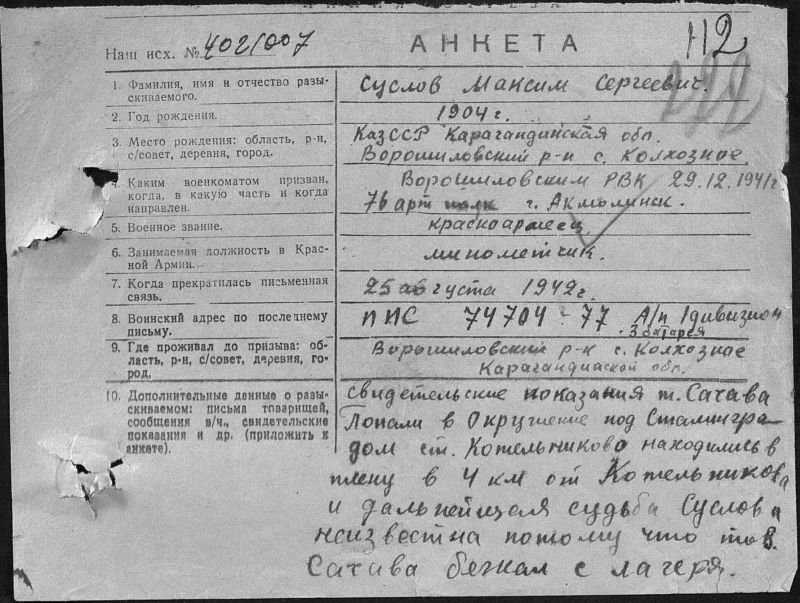 Наш исх. № 4021007
АНКЕТА
112
1. Фамилия, имя и отчество разыскиваемого.
Суслов Максим Сергеевич.
2. Год рождения.
1904 г.
3. Место рождения: область, р-н,
с/совет, деревня, город.
КазССР Карагандинская обл.
Ворошиловский р-н с. Колхозное.
4. Каким военкоматом призван,
когда, в какую часть и когда
направлен.
Ворошиловским РВК 29.12.1941г
76 арт полк г. Акмолинск.
5. Военное звание.
красноармеец
6. Занимаемая должность в Красной Армии.
минометчик.
7. Когда прекратилась письменная
связь.
25 августа 1942г.
8. Воинский адрес по последнему
письму.
ППС 74704-77 А/п 1 дивизион
3 батарея
9. Где проживал до призыва: область, р-н, с/совет, деревня, город.
Ворошиловский р-н с. Колхозное
Карагандинской обл.
10. Дополнительные данные о разыскиваемом: письма товарищей,
сообщения в/ч., свидетельские
показания и др. (приложить к
анкете).
свидетельские показания т. Сачава
Попали в Окружение под Сталингра-
дом ст. Котельниково находились в
плену в 4 км от Котельникова
и дальнейшея судьба Суслова
неизвестна потому что тов.
Сачава бежал с лагеря.